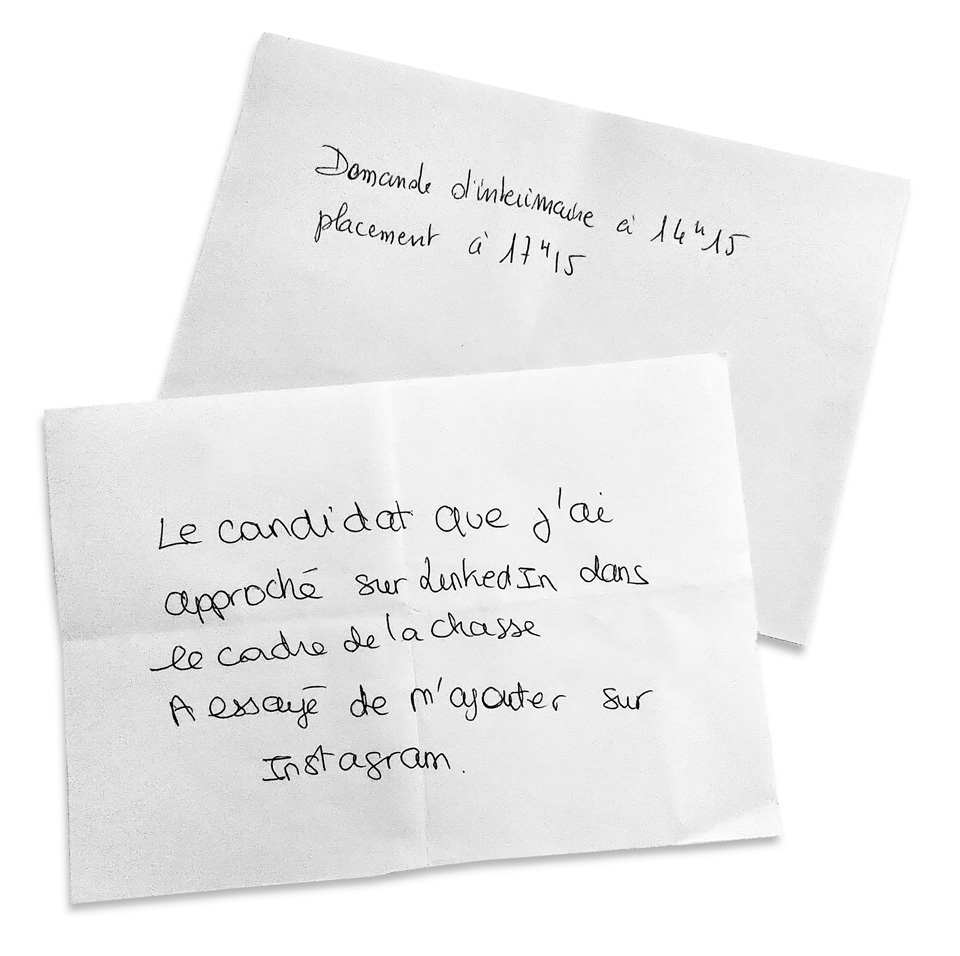 Demande d'interimaire à 14h15
placement à 17h15
Le candidat que j'ai
approché sur LinkedIn dans
le cadre de la chasse
A essayé de m'ajouter sur
Instagram.